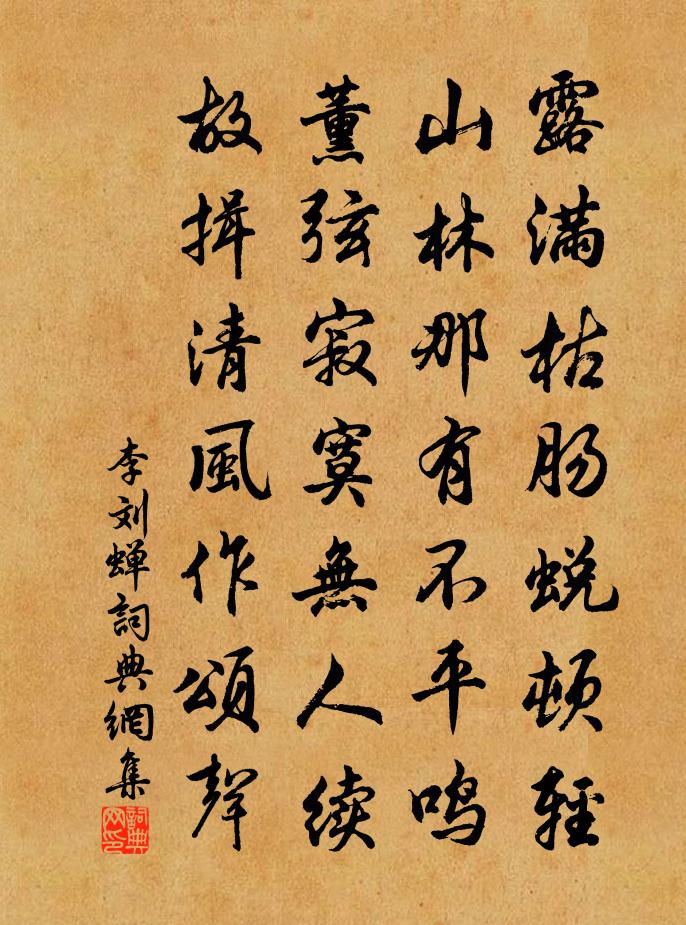 露满枯肠蜕顿轻
山林那有不平鸣
薰弦寂寞無人续
故揖清風作頌聲
李刘蝉詞典網集
詞典网印